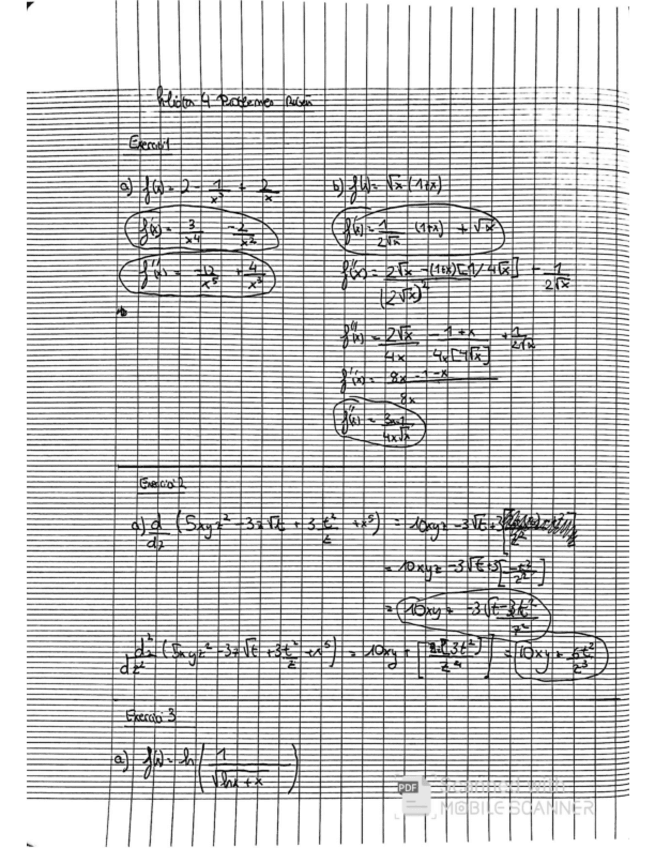 4 Problemes
Exercici 1
a) f(x) = 2 - 1/x³ + 2/x
f'(x) = 3/x⁴ - 2/x²
f''(x) = -12/x⁵ + 4/x³
b) f(x) = √x (1+x)
f'(x) = 1/2√x (1+x) + √x
f''(x) = 2√x - (1+x)[1/4√x] / (2√x)² + 1/2√x
f''(x) = 2√x/4x - 1+x/4x[4√x] + 1/2√x
f''(x) = 8x - 1 - x / 8x
Exercici 2
a) d/dz (5xyz² - 3z√t + 3t²/z + x⁵) = 10xyz - 3√t + 3
= 10xyz - 3√t + 3[-t²/z²]
= 10xyz - 3√t - 3t²/z²
d²/dz² (5xyz² - 3z√t + 3t²/z + x⁵) = 10xy + = 10xy + 6t²/z³
Exercici 3
a) f(x) = ln(1/√lnx + x)
PDF
MOBILE SCANNER